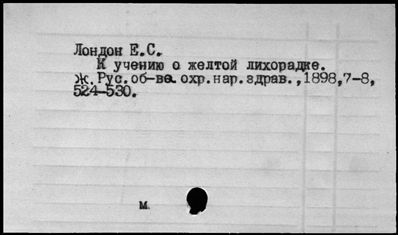 Лондон Е.С.
К учению о желтой лихорадке.
Ж.Рус.об-ва охр.нар.здрав.,1898,7-8,
524-530.
м.